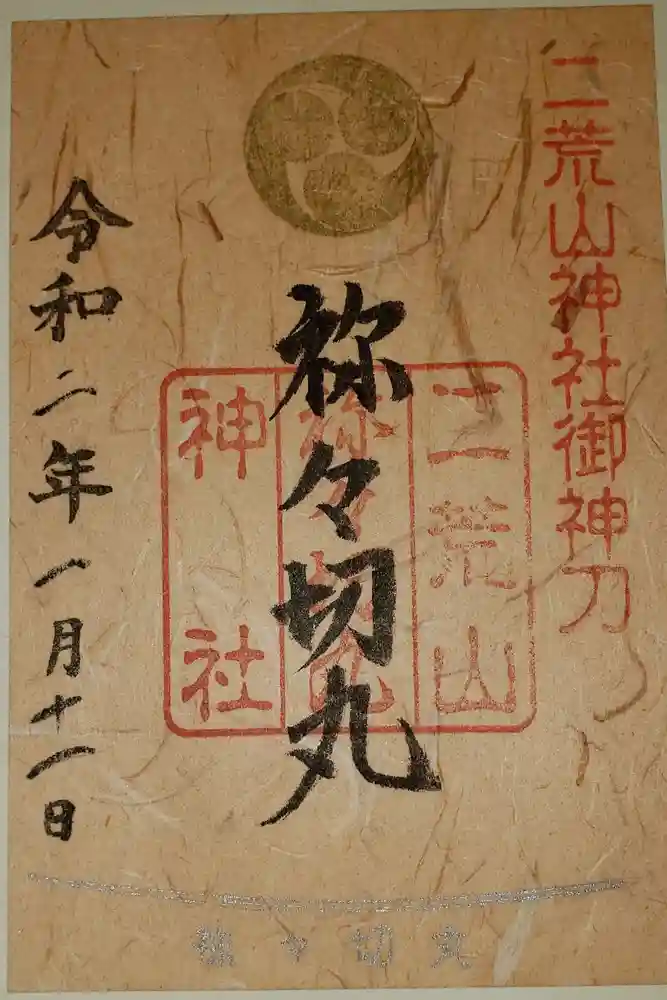 二荒山神社御神刀
二荒山
祢々切丸
神社
祢々切丸
令和二年一月十一日
祢々切丸